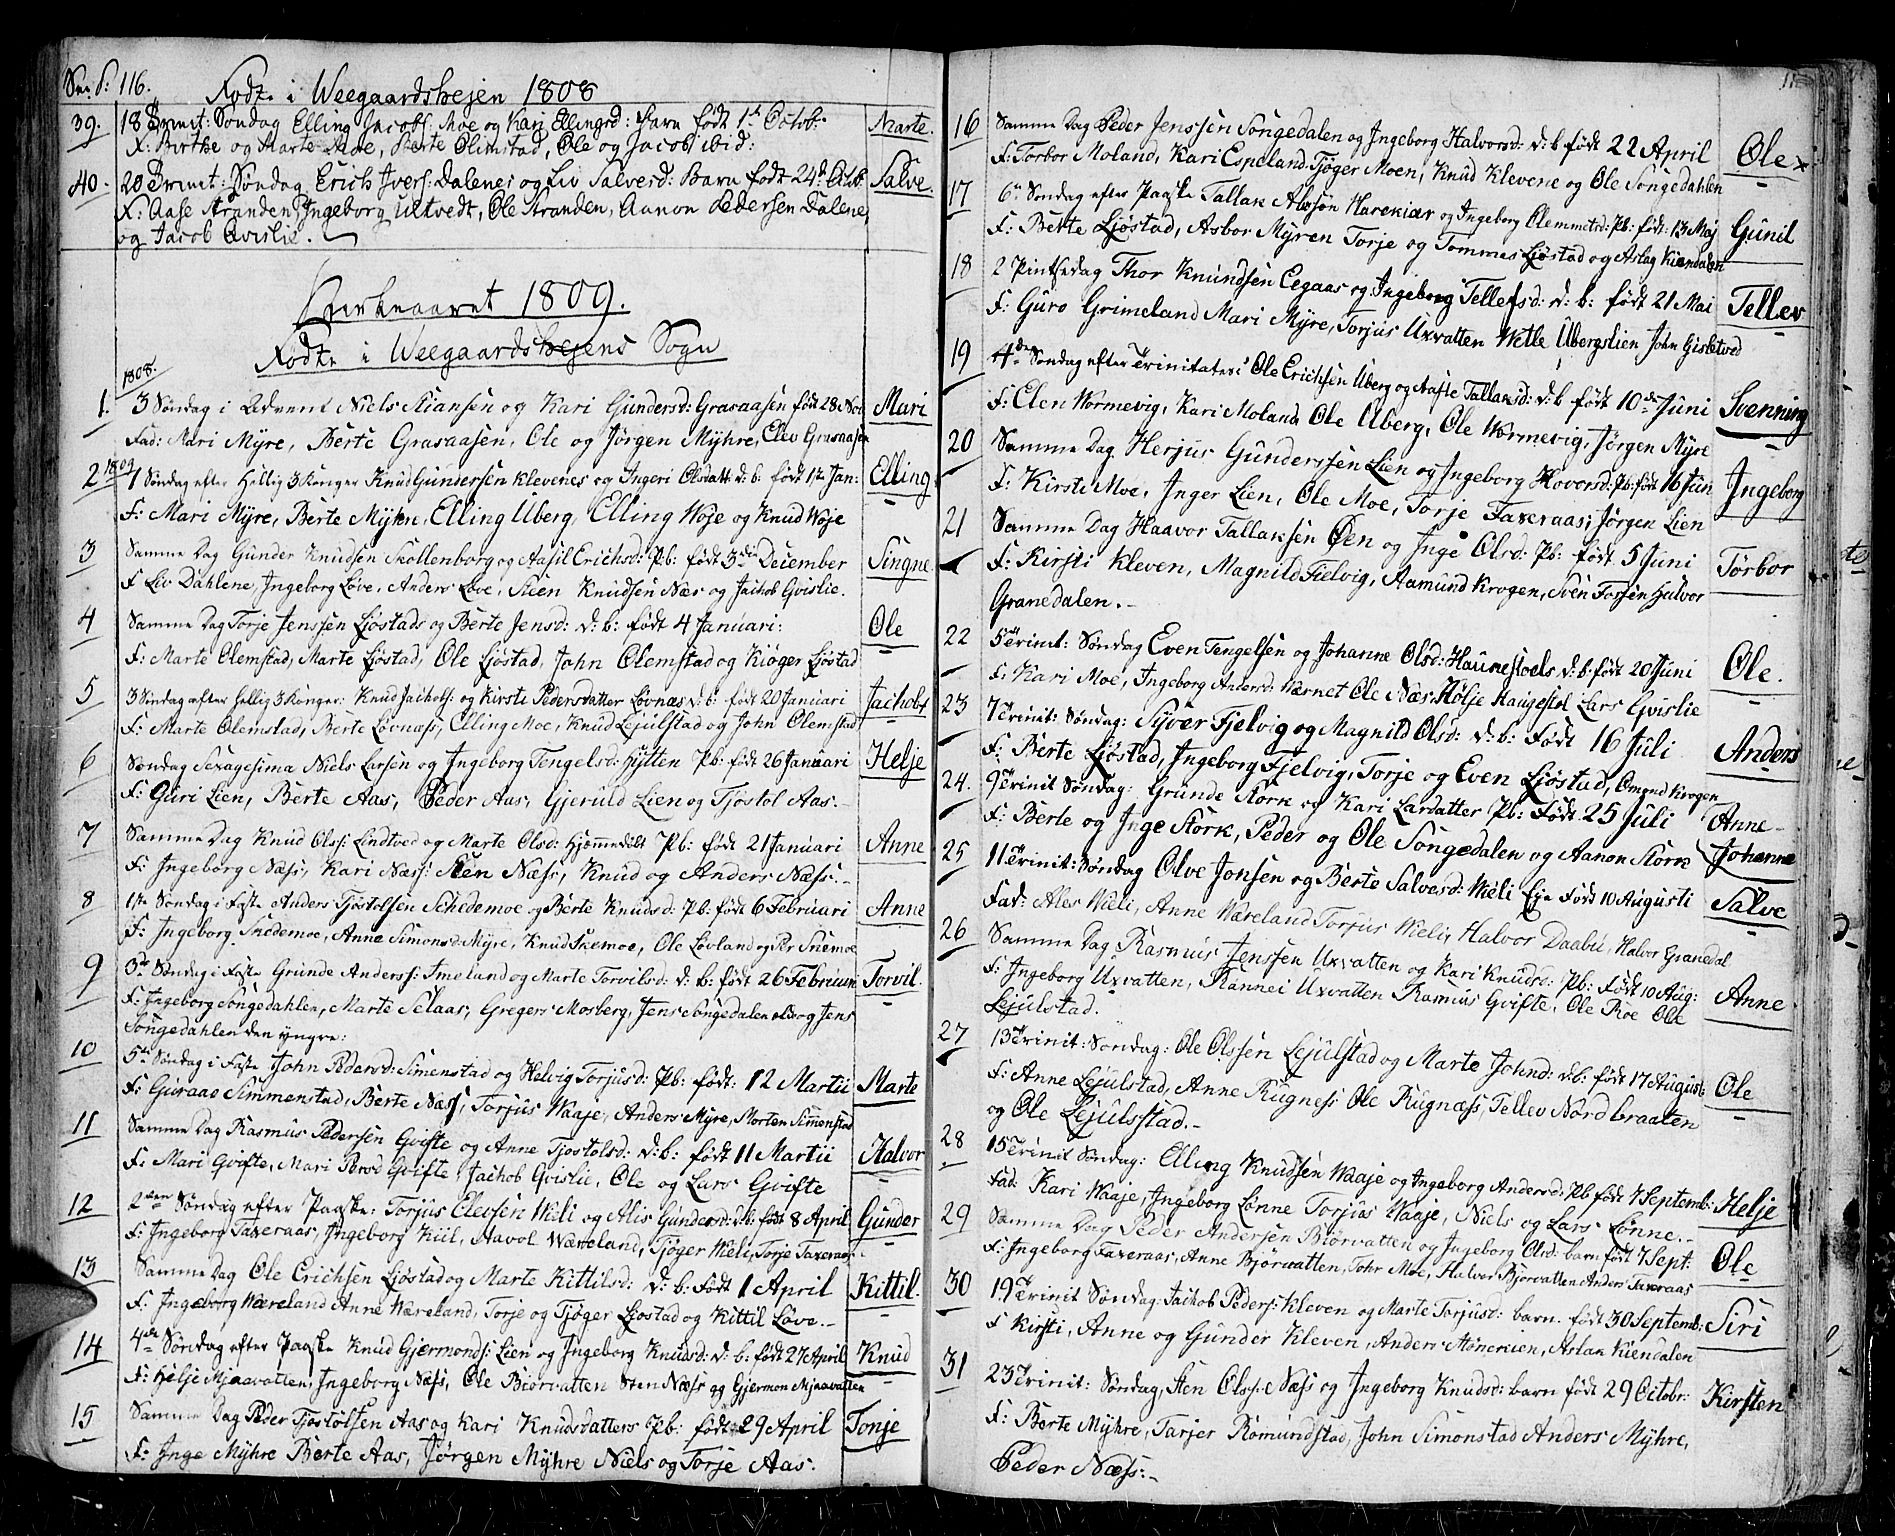 116.
Fødte i Weegaardshejen 1808
39. 18 Trinit: Søndag Elling Jacobs: Moe og Kari Ellingsd: Barn født 1te Octob: Marte.
F: Birthe og Marte Moe, Berte Olimstad, Ole og Jacob ibid:
40. 20 Trinit: Søndag Erich Ivers: Dalenes og Liv Salvesd: Barn født 24de Octob: Salve.
F: Aase Stranden, Ingeborg Ultvedt, Ole Stranden, Aanon Pedersen Dalene,
og Jacob Qvislie.
Kirkeaaret 1809.
Fødte i Weegaardshejens Sogn
1808.
1. 3 Søndag i Advent Niels Stiansen og Kari Gundersd: Grasaasen født 28 Nov Mari
Fad: Mari Myre, Berte Grasaasen, Ole og Jørgen Myhre, Elev Grasaasen
1809
2 1 Søndag efter Hellig 3 Konger Knud Gundersen Klevenes og Ingeri Olsdatt: d: b: født 1te Jan: Elling
F: Mari Myre, Berte Myhre, Elling Uberg, Elling Woje og Knud Woje
3 Samme Dag Gunder Knudsen Skollenborg og Aasil Erichsd: Pb: født 3die December Singne
F Liv Dahlene, Ingeborg Løve, Anders Løve, Steen Knudsen Næs og Jachob Gvislie.
4 Samme Dag Torje Jenssen Ljøstads og Berte Jensd: d: b: født 4 Januari: Ole
F: Marte Olemstad, Marte Ljøstad, Ole Ljøstad, John Olemstad og Kiøger Ljøstad
5 3 Søndag efter Hellig 3 Konger: Knud Jachobs: og Kirsti Pedersdatter Løvnæs d: b: født 20 Januari Jachobt
F: Marte Olemstad, Berte Løvnass, Elling Moe, Knud Lejulstad og John Olemstad
6 Søndag Sexagesima Niels Larsen og Ingeborg Tengelsd: Hytten Pb: født 26 Januari Helje
F: Guri Lien, Berte Aas, Peder Aas, Gjeruld Lien og Tjøstol Aas.
7 Samme Dag Knud Olss: Lindtved og Marte Olsd: Hjemmedølt Pb: født 21 Januari Anne
F: Ingeborg Næss, Kari Næss: Sten Næss, Knud og Anders Næss.
8 1ste Søndag i Faste Anders Tjostolsen Schedemoe og Berte Knudsd: Pb: født 6 Februari Anne
F: Ingeborg Skedemoe, Anne Simonsd: Myre, Knud Skemoe, Ole Lovland og Per Skemoe
9 3de Søndag i Faste Grunde Anderss: Imeland og Marte Torvilsd: d: b: født 26 Februari Torvil.
F: Ingeborg Songedahlen, Marte Selaas, Gregers Mosberg, Jens Songedalen og Jens
Songedahlen den yngre:
10 5te Søndag i Faste John Pedersd: Simenstad og Helvig Torjusd: Pb: født: 12 Martii Marte
F: Guraae Simmenstad, Berte Næss, Torjus Waaje, Anders Myre, Morten Simenstad
11 Samme Dag Rasmus Pedersen Gvifte og Anne Tjostolsd: d: b: født 11 Martii Halvor
F: Mari Gvifte, Mari Persd Gvifte, Jachob Gvislie, Ole og Lars Gvifte
12 2den Søndag efter Paaske: Torjus Elevsen Wieli og Alis Gundersd: d: b: født 8 April Gunder
F: Ingeborg Faxeraas, Ingeborg Kiil, Aavol Wæreland, Tjøger Wieli, Torje Faxeraas
13 Samme Dag Ole Erichsen Ljøstad og Marte Kittilsd: d: b: født 1 April Kittil.
F: Ingeborg Wæreland, Anne Wæreland, Torje og Tjøger Ljøstad og Kittil Løve.
14 4de Søndag efter Paaske Knud Gjermonds: Lien og Ingeborg Knudsd: d: b: født 27 April Knud
F: Helje Mjaavatten, Ingeborg Næss, Ole Biorvatten Sten Næss og Gjermon Mjaavatten
15 Samme Dag Peder Tjostolsen Aas og Kari Knudsdatters Pb: født 29 April Tonje
F: Inge Myhre Berte Aas, Jørgen Myhre Niels og Torje Aas.
16 Samme Dag Peder Jenssen Songedalen og Ingeborg Halvorsd: d: b født 22 April Ole
F: Torbor Moland, Kari Espeland Tjøger Moen, Knud Klevene og Ole Songedahlen
17 6te Søndag efter Paaske Tallak Alvsøn Harekiær og Ingeborg Olemmetsd: Pb: født: 13 Maj Gunil
F: Berte Ljøstad, Asbor Myren Torje og Tommes Ljøstad og Aslag Kiendalen
18 2 Pintsedag Thor Knundsen Eegaas og Ingeborg Tellefsd: d: b: født 21 Mai Tellev
F: Guro Grimeland Mari Myre, Torjus Uxvatten Wetle Ubergslien John Gisletved
19 4de Søndag efter Trinitates Ole Erichsen Uberg og Aaste Tallaksd: d: b født 10de Juni Svenning
F: Elen Wormevig, Kari Moland Ole Uberg, Ole Wormevig, Jørgen Myre
20 Samme Dag Herjus Gunderssen Lien og Ingeborg Hovorsd: Pb: født 16 Jun Ingeborg
F: Kirsti Moe, Inger Lien, Ole Moe, Torje Faxeraas, Jørgen Lien
21 Samme Dag Haavor Tallaksen Øen og Inge Olsd: Pb: født 5 Juni Torbor
F: Kirsti Kleven, Magnild Fielvig, Aamund Krogen, Sven Torsen Halvor
Granedalen.
22 5 Trinit: Søndag Even Tengelsen og Johanne Olsd: Haunestoels d: b: født 20 Juni Ole.
F: Kari Moe, Ingeborg Andersd: Wærnet Ole Næs, Stølje Haugestøl Lars Gvislie
23 7 Trinit: Søndag: Syver Fjelvig og Magnild Olsd: d: b: Født 16 Juli Anders
F: Berte Ljøstad, Ingeborg Fjelvig, Torje og Even Ljøstad, Omond Krogen
24. 9 Trinit Søndag: Grunde Stork og Kari Larsdatter Pb: Født 25 Juli Anne
F: Berte og Inge Stork, Peder og Ole Songedalen og Aanon Stork Johanne
25 11 Trinit: Søndag Olve Jonsen og Berte Salvesd: Wieli Eje Født 10 Augusti Salve
Fad: Ales Wieli, Anne Wæreland Torjus Wieli, Halvor Daabu, Halvor Granedal
26 Samme Dag Rasmus Jenssen Uxvatten og Kari Knudsd: Pb: Født 10 Aug: Anne
F: Ingeborg Uxvatten, Rannei Uxvatten Rasmus Gvifte, Ole Roe Ole
Lejulstad.
27 13 Trinit: Søndag: Ole Olssen Lejulstad og Marte Johnd: d: b: født 17 August: Ole
F: Anne Lejulstad, Anne Rugness Ole Rugnæss, Tellev Nordbraaten
og Ole Lejulsstad.
28 15 Trinit Søndag: Elling Knudsen Waaje og Ingeborg Andersd: Pb født 7 Septemb: Helje
Fad: Kari Waaje, Ingeborg Lønne Torjus Waaje, Niels og Lars Lønne.
29 Samme Dag Peder Andersen Biørvatten og Ingeborg Olsd: barn født 7 Sept: Ole
F: Ingeborg Faxeraas, Anne Bjørvatten, Tohr Moe, Halvor Bjorvatten Anders Faxeraas
30 19 Trinit Søndag: Jachob Peders: Kleven og Marte Torjusd: barn født 30 Septemb: Siri
F Kirsti, Anne og Gunder Kleven, Anders Aonekien, Aslan Kiendalen
31 23 Trinit: Søndag, Sten Olss:e Næss og Ingeborg Knudsd: barn født 29 Octobr: Kirsten
F: Berte Myhre, Tarjer Romundstad, John Simonstad Anders Myhre,
Peder Næss.